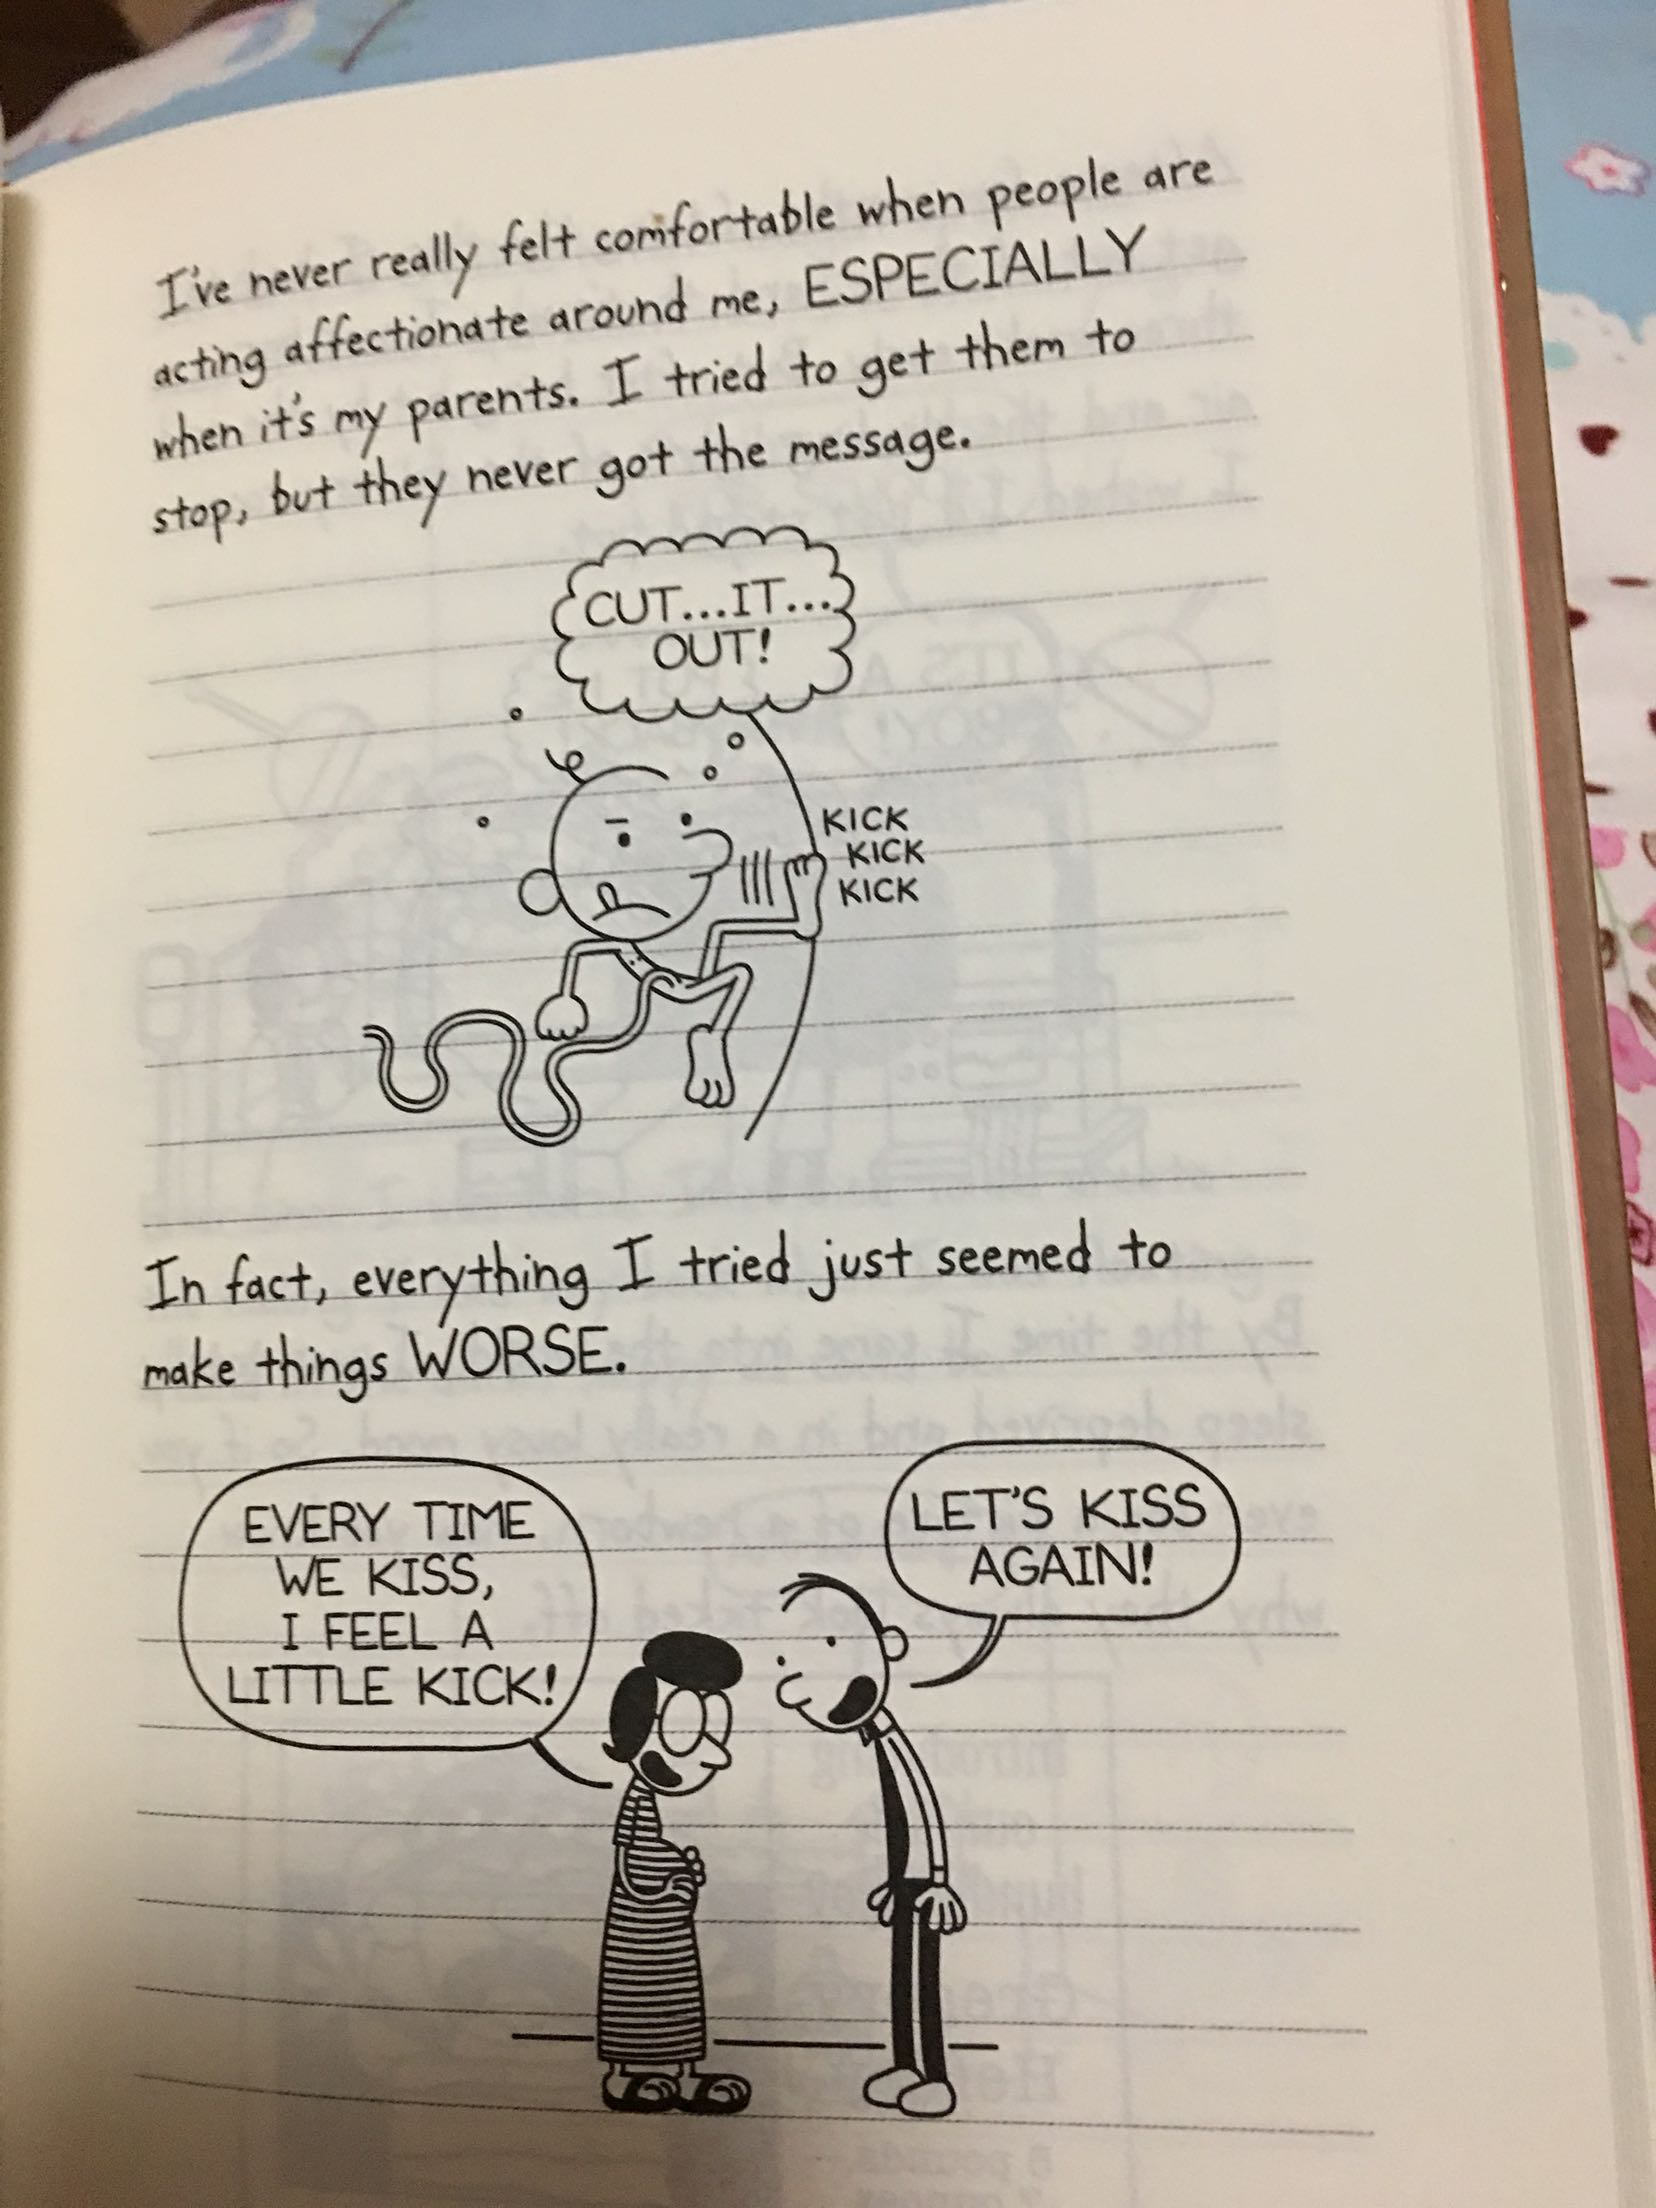 I've never really felt comfortable when people are
acting affectionate around me, ESPECIALLY
when it's my parents. I tried to get them to
stop, but they never got the message.
CUT...IT...
OUT!
KICK
KICK
KICK
In fact, everything I tried just seemed to
make things WORSE.
EVERY TIME
WE KISS,
I FEEL A
LITTLE KICK!
LET'S KISS
AGAIN!